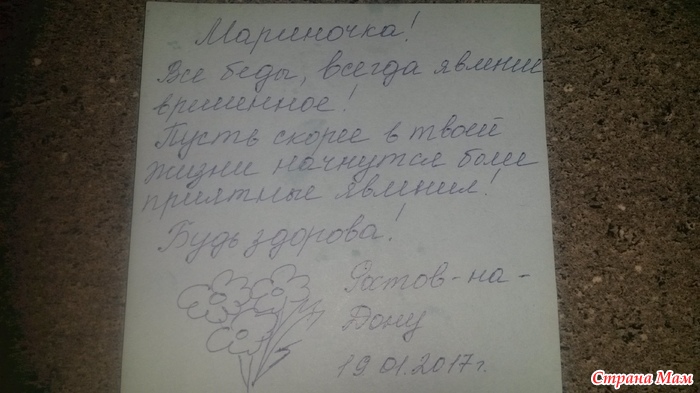 Мариночка!
Все беды, всегда явление
временное!
Пусть скорее в твоей
жизни начнутся более
приятные явления!
Будь здорова!
Ростов-на-
Дону
19.01.2017г.
Страна Мам